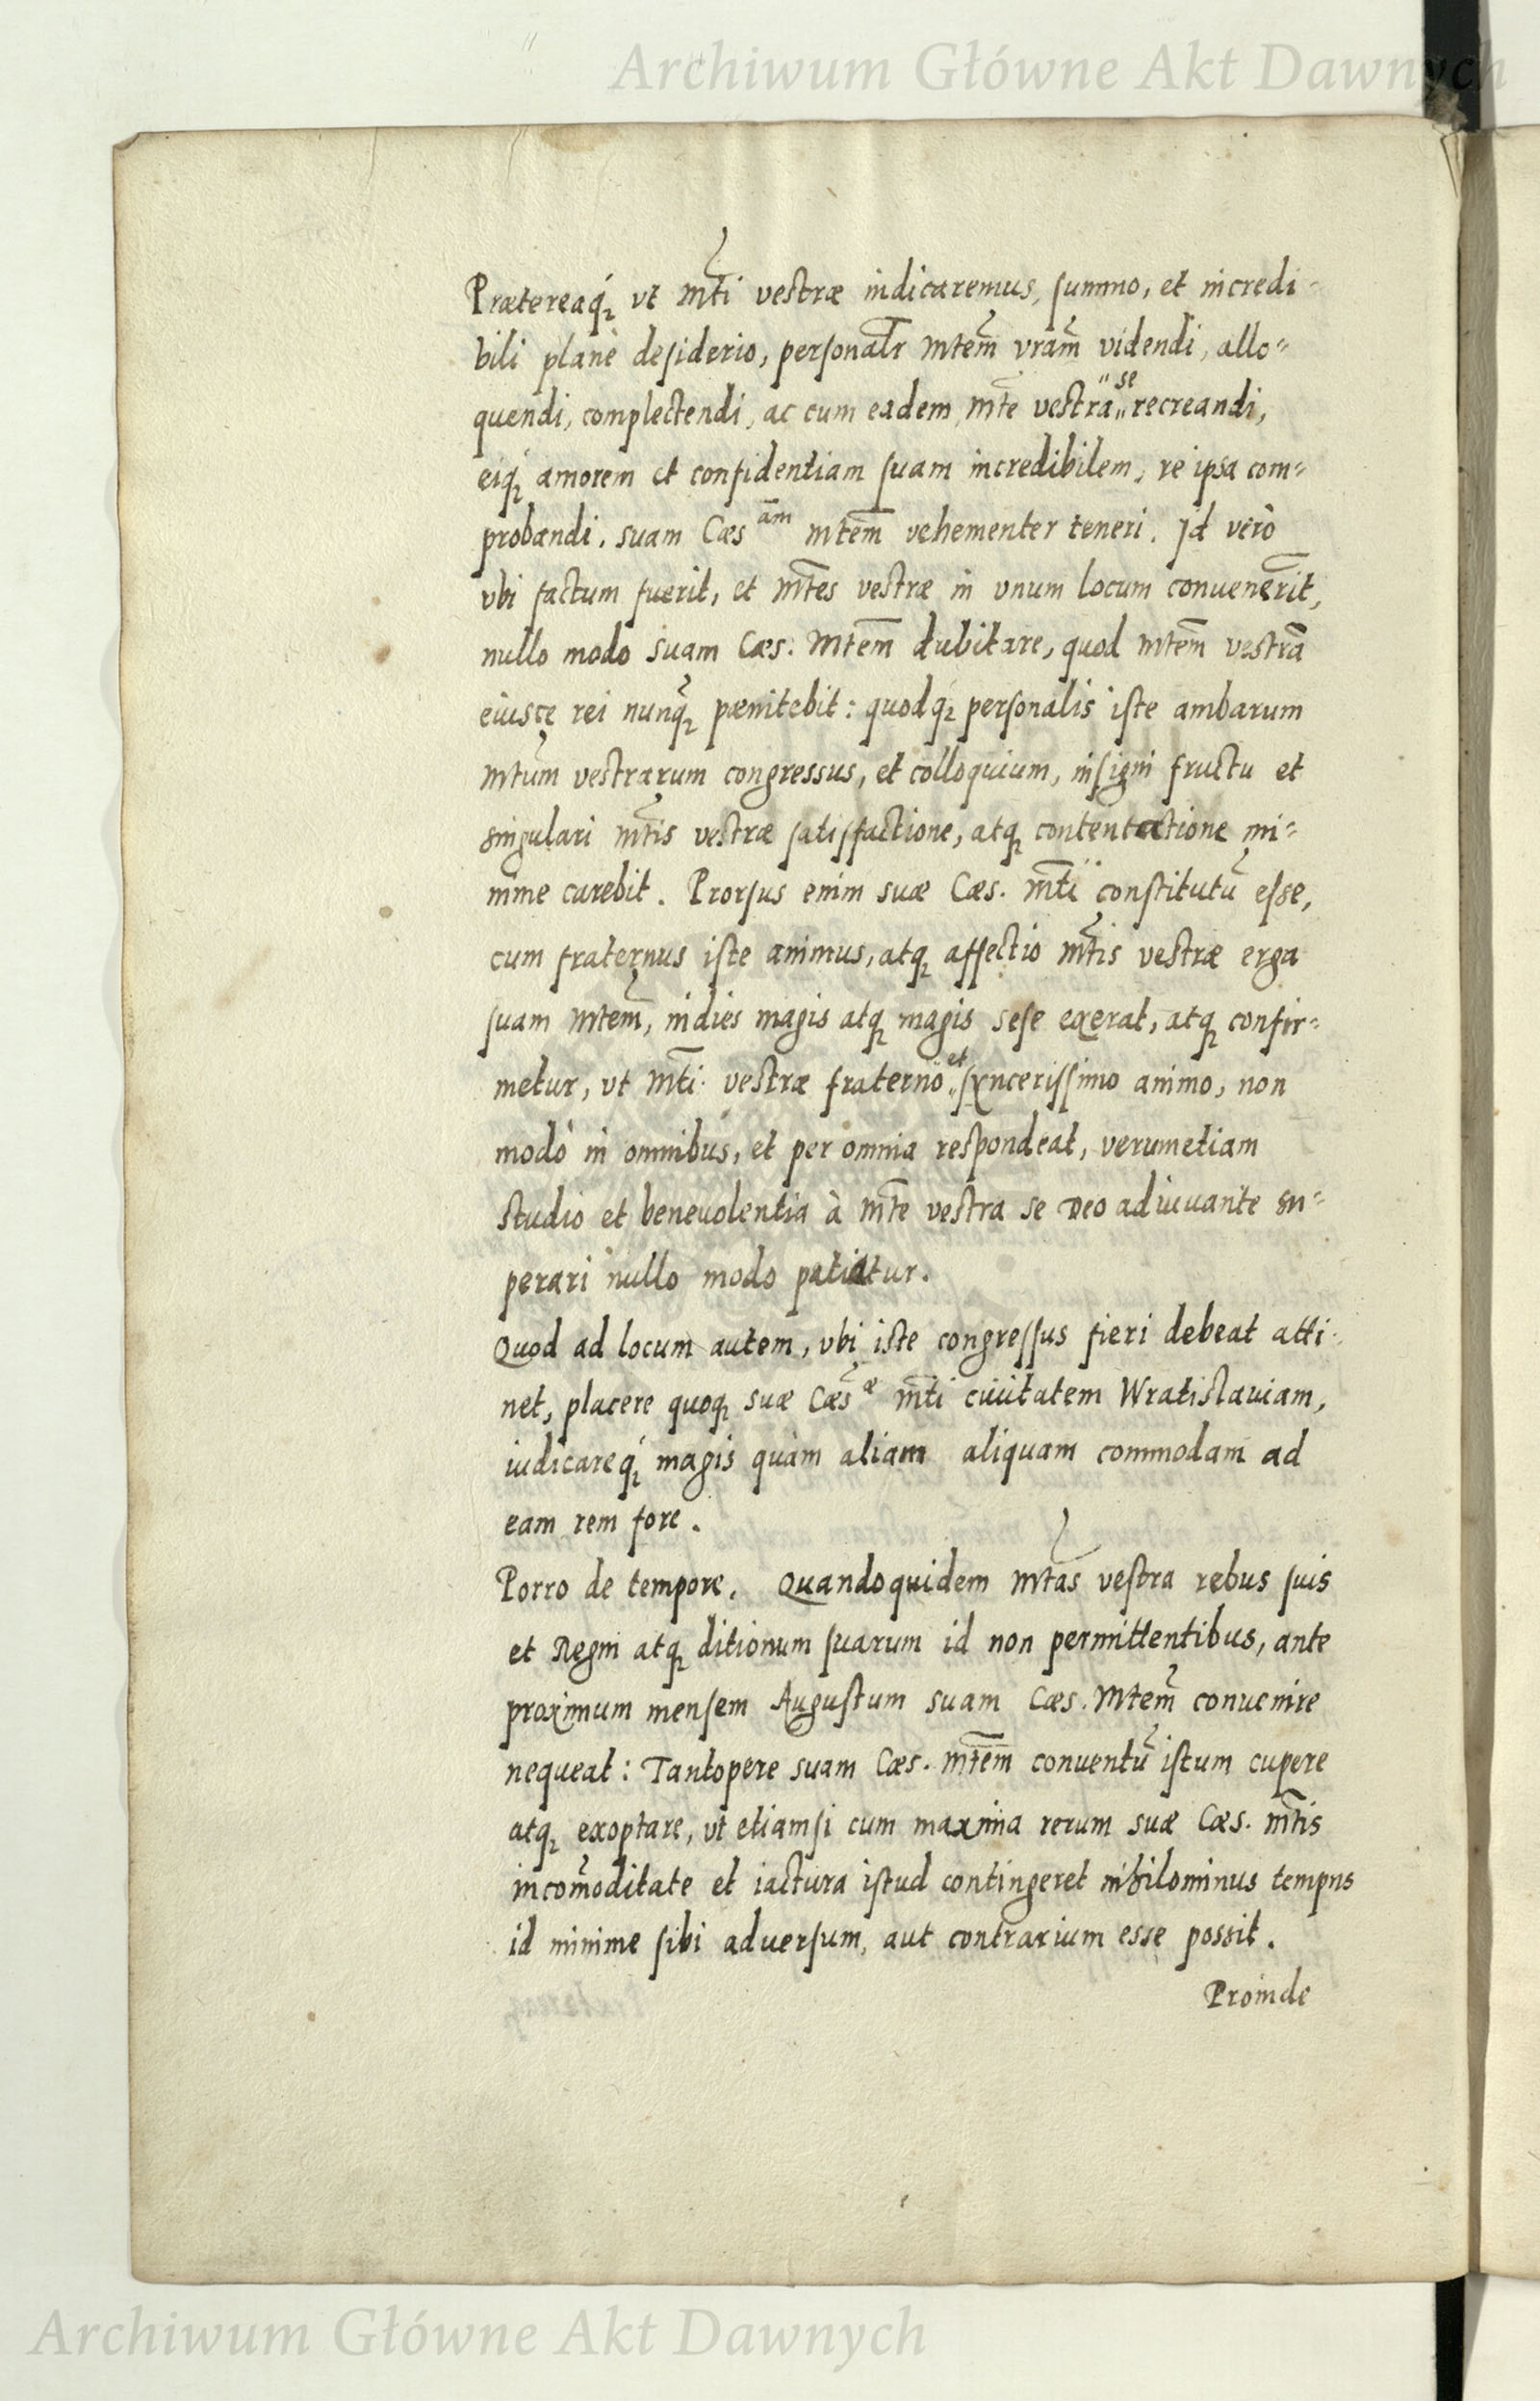 Archiwum Główne Akt Dawnych
Prætereaq́ꝫ vt Mt̃i vestræ indicaremus, summo, et incredi-
bili planè desiderio, personalr̃ Mtem̃ vram̃ videndi, allo-
quendi, complectendi, ac cum eadem Mt̃e vestra se recreandi,
eiq́ꝫ amorem et confidentiam suam incredibilem, re ipsa com-
probandi, suam Cæs am̃ Mtem̃ vehementer teneri. Id verò
vbi factum fuerit, et Mt̃es vestræ in vnum locum conuenerĩt,
nullo modo suam Cæs. Mtem̃ dubitare, quod Mtem̃ vestrã
eiusce rei nunq̃ꝫ pænitebit: quodq́ꝫ personalis iste ambarum
Mtum̃ vestrarum congressus, et colloquium, insigni fructu et
singulari Mt̃is vestræ satisfactione, atqꝫ contentatione mi-
nime carebit. Prorsus enim suæ Cæs. Mt̃i constitutũ esse,
cum fraternus iste animus, atqꝫ affectio Mt̃is vestræ erga
suam Mtem̃, indies magis atqꝫ magis sese exerat, atqꝫ confir-
metur, vt Mt̃i vestræ fraterno et syncerissimo animo, non
modò in omnibus, et per omnia respondeat, verumetiam
studio et beneuolentia à Mt̃e vestra se Deo adiuuante su-
perari nullo modo patiatur.
Quod ad locum autem, vbi iste congressus fieri debeat atti-
net, placere quoqꝫ suæ Cæs̃ æ Mt̃i ciuitatem Wratislauiam,
iudicareq́ꝫ magis quàm aliam aliquam commodam ad
eam rem fore.
Porro de tempore. Quandoquidem Mt̃as vestra rebus suis
et Regni atqꝫ ditionum suarum id non permittentibus, ante
proximum mensem Augustum suam Cæs. Mtem̃ conuenire
nequeat: Tantopere suam Cæs. Mtem̃ conuentũ istum cupere
atqꝫ exoptare, vt etiamsi cum maxima rerum suæ Cæs. Mt̃is
incom̃oditate et iactura istud contingeret nihilominus tempus
id minime sibi aduersum, aut contrarium esse possit.
Proinde
Archiwum Główne Akt Dawnych